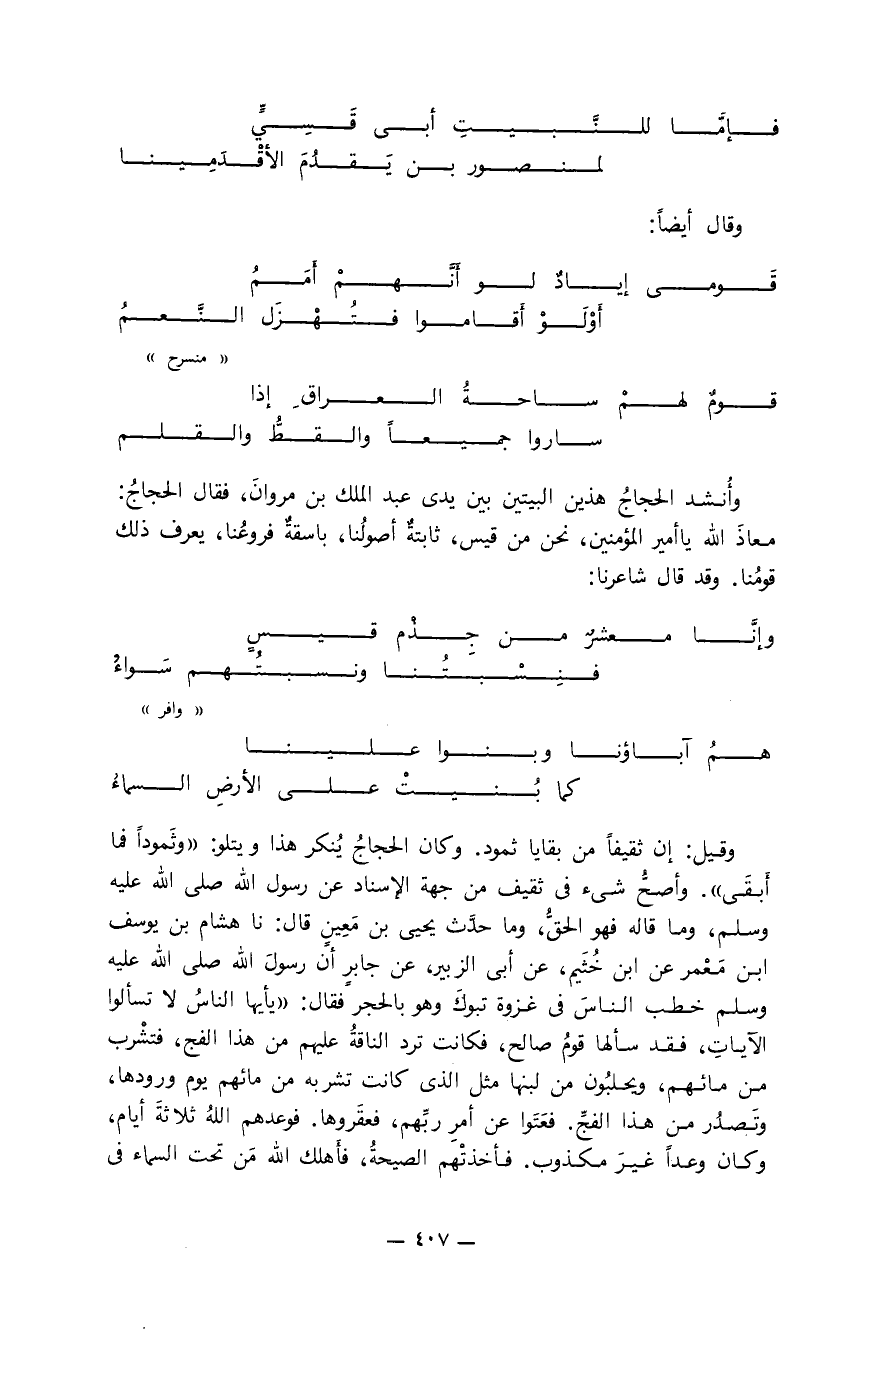 فإمَّا للنَّبيتِ أبى قَسِيٍّ
لمنصور بن يَقدُمَ الأقْدَمِينا
وقال أيضاً:
قَومى إيادٌ لو أنَّهمْ أَمَمُ
أوْلَوْ أقاموا فتُهْزَل النَّعمُ
« منسرح »
قومٌ لهمْ ساحةُ العراقِ إذا
ساروا جميعاً والقطُّ والقلم
وأُنشد الحجاجُ هذين البيتين بين يدى عبد الملك بن مروانَ، فقال الحجاجُ:
معاذَ الله ياأمير المؤمنين، نحن من قيس، ثابتةٌ أصولُنا، باسقةٌ فروعُنا، يعرف ذلك
قومُنا. وقد قال شاعرنا:
وإنَّا معشرٌ من جِذْم قيسٍ
فنِسْبتُنا ونسبتُهم سَواءُ
« وافر »
همُ آباؤنا وبنوا علينا
كما بُنيتْ على الأرضِ السماءُ
وقيل: إن ثقيفاً من بقايا ثمود. وكان الحجاجُ يُنكر هذا ويتلو: «وثَموداً فما
أَبقَى». وأصحُّ شىء فى ثقيف من جهة الإسناد عن رسول الله صلى الله عليه
وسلم، وما قاله فهو الحقُّ، وما حدَّث يحيى بن مَعِينٍ قال: نا هشام بن يوسف
ابن مَعْمر عن ابن خُثَيم، عن أبى الزبير، عن جابرٍ أن رسولَ الله صلى الله عليه
وسلم خطب الناسَ فى غزوة تبوكَ وهو بالحجر فقال: «يأيها الناسُ لا تسألوا
الآياتِ، فقد سألها قومُ صالح، فكانت ترد الناقةُ عليهم من هذا الفج، فتشْرب
من مائهم، ويحلبُون من لبنها مثل الذى كانت تشربه من مائهم يوم ورودها،
وتَصدُر من هذا الفجِّ. فعَتَوا عن أمرِ ربِّهم، فعقَروها. فوعدهم اللهُ ثلاثةَ أيام،
وكان وعداً غيرَ مكذوب. فأخذتْهم الصيحةُ، فأهلك الله مَن تحت السماء فى
— ٤٠٧ —